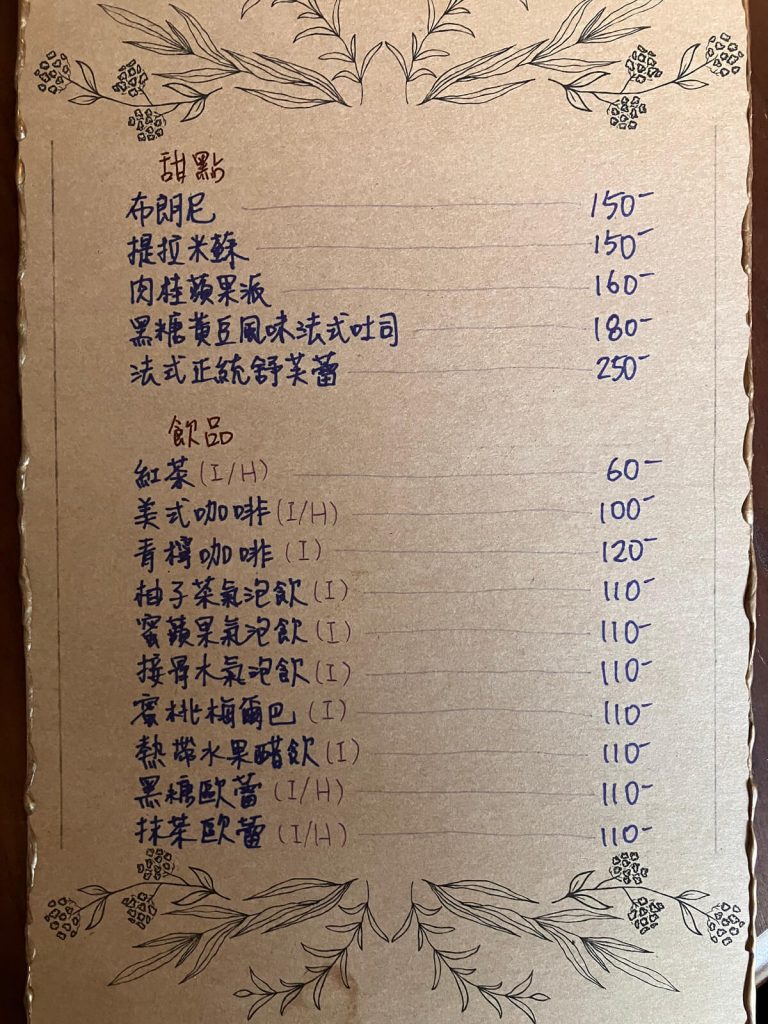 甜點
布朗尼 150-
提拉米蘇 150-
肉桂蘋果派 160-
黑糖黃豆風味法式吐司 180-
法式正統舒芙蕾 250-
飲品
紅茶(I/H) 60-
美式咖啡(I/H) 100-
青檸咖啡(I) 120-
柚子茶氣泡飲(I) 110-
蜜蘋果氣泡飲(I) 110-
接骨木氣泡飲(I) 110-
蜜桃梅爾巴(I) 110-
熱帶水果醋飲(I) 110-
黑糖歐蕾(I/H) 110-
抹茶歐蕾(I/H) 110-